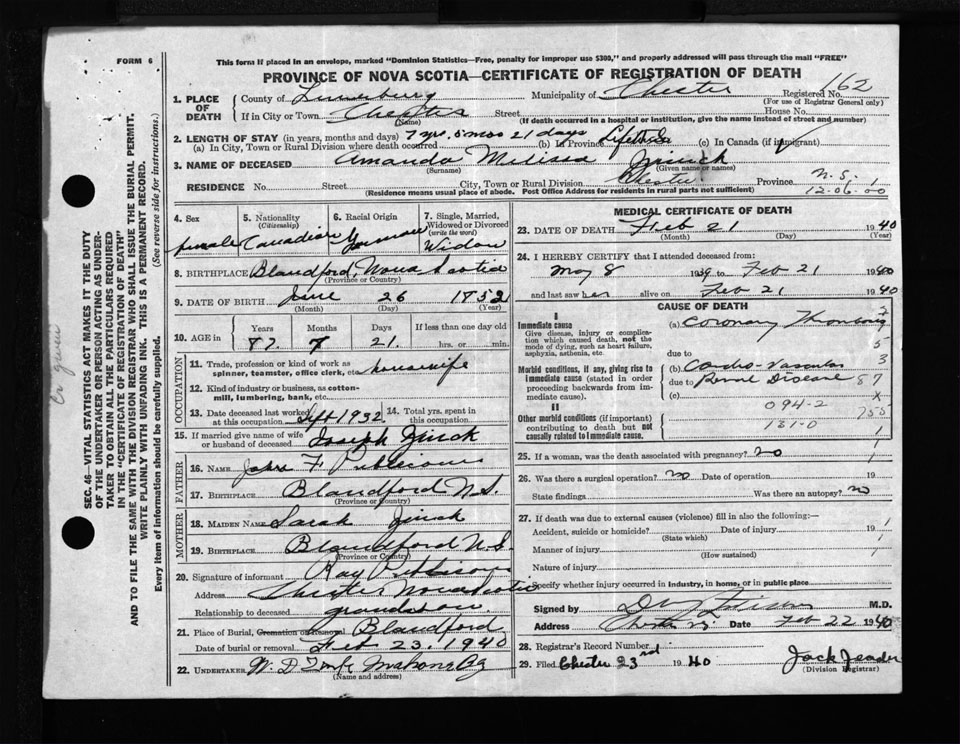 FORM 6
This form if placed in an envelope, marked "Dominion Statistics—Free, penalty for improper use $300," and properly addressed will pass through the mail "FREE"
PROVINCE OF NOVA SCOTIA—CERTIFICATE OF REGISTRATION OF DEATH
1. PLACE OF DEATH
County of Lunenburg Municipality of Chester Registered No. 162
(For use of Registrar General only)
If in City or Town Chester Street House No.
(Name) (If death occurred in a hospital or institution, give the name instead of street and number)
2. LENGTH OF STAY (in years, months and days) 7 yrs. 5 mos 21 days
(a) In City, Town or Rural Division where death occurred (b) In Province Lifetime (c) In Canada (if immigrant)
3. NAME OF DECEASED Amanda Melissa Zinick
(Surname) (Given name or names)
RESIDENCE No. Street City, Town or Rural Division Chester Province N.S.
(Residence means usual place of abode. Post Office Address for residents in rural parts not sufficient) 12-06-00
4. Sex female
5. Nationality (Citizenship) Canadian
6. Racial Origin German
7. Single, Married, Widowed or Divorced (write the word) Widow
8. BIRTHPLACE Blandford, Nova Scotia
(Province or Country)
9. DATE OF BIRTH June 26 1852
(Month) (Day) (Year)
10. AGE in Years 87 Months 7 Days 21. If less than one day old hrs. or min.
OCCUPATION
11. Trade, profession or kind of work as spinner, teamster, office clerk, etc. housewife
12. Kind of industry or business, as cotton-mill, lumbering, bank, etc.
13. Date deceased last worked at this occupation Sept 1932
14. Total yrs. spent in this occupation
15. If married give name of wife or husband of deceased Joseph Zinck
FATHER
16. NAME John F Publicover
17. BIRTHPLACE Blandford N.S.
(Province or Country)
MOTHER
18. MAIDEN NAME Sarah Zinck
19. BIRTHPLACE Blandford N.S.
(Province or Country)
20. Signature of informant Ray
Address Chester Nova Scotia
Relationship to deceased grandson.
21. Place of Burial, Cremation or Removal Blandford
Date of burial or removal Feb 23. 1940
22. UNDERTAKER W. D Mahone Bay
(Name and address)
MEDICAL CERTIFICATE OF DEATH
23. DATE OF DEATH Feb 21 1940
(Month) (Day) (Year)
24. I HEREBY CERTIFY that I attended deceased from:
May 8 1939 to Feb 21 1940
and last saw her alive on Feb 21 1940
CAUSE OF DEATH
I
Immediate cause
Give disease, injury or complication which caused death, not the mode of dying, such as heart failure, asphyxia, asthenia, etc
(a) Coronary Thrombosis
due to
Morbid conditions, if any, giving rise to immediate cause (stated in order proceeding backwards from immediate cause).
(b) Cardio-Vascular
due to Renal Disease
(c)
094-2
131-0
II
Other morbid conditions (if important) contributing to death but not causally related to immediate cause.
5
3
87
x
755
1
25. If a woman, was the death associated with pregnancy? no
26. Was there a surgical operation? no Date of operation 19
State findings Was there an autopsy? no
27. If death was due to external causes (violence) fill in also the following:—
Accident, suicide or homicide? Date of injury 19
(State which)
Manner of injury
(How sustained)
Nature of injury
Specify whether injury occurred in industry, in home, or in public place
Signed by M.D.
Address Chester NS Date Feb 22 1940
28. Registrar's Record Number
29. Filed Chester 23rd 1940 Jack
(Division Registrar)
SEC. 46—VITAL STATISTICS ACT MAKES IT THE DUTY
OF THE UNDERTAKER OR PERSON ACTING AS UNDER-
TAKER TO OBTAIN ALL THE PARTICULARS REQUIRED
IN THE "CERTIFICATE OF REGISTRATION OF DEATH"
AND TO FILE THE SAME WITH THE DIVISION REGISTRAR WHO SHALL ISSUE THE BURIAL PERMIT.
WRITE PLAINLY WITH UNFADING INK. THIS IS A PERMANENT RECORD.
Every item of information should be carefully supplied. (See reverse side for instructions.)